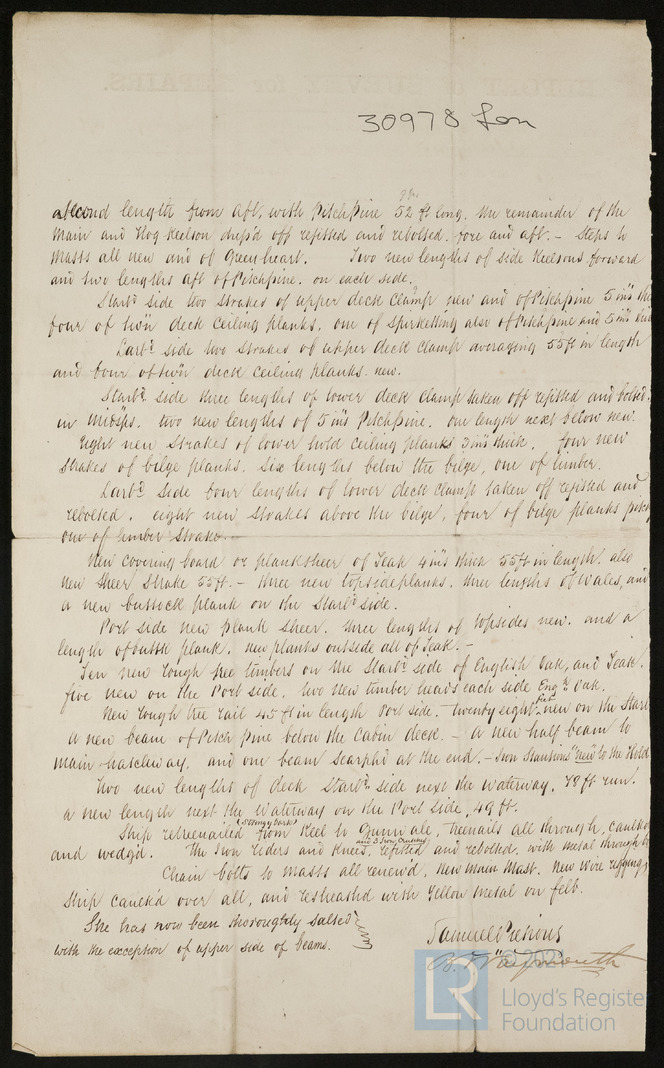 30978 Lon
a second length from aft, with Pitchpine 52 ft long. the remainder of the
Main and Hog Keelson drop'd off refitted and rebolted. fore and aft. – Steps to
Masts all new and of Greenheart. Two new lengths of side Keelsons forward
and two lengths aft of Pitchpine. on each side.
Starbd side two strakes of upper deck clamp new and of Pitchpine 5 ins thk
four of twn deck ceiling planks, one of spirketting also of Pitchpine and 5 ins thk
Larbd side two strakes of upper deck clamp averaging 55 ft in length
and four of twn deck ceiling planks. new.
Starbd side three lengths of lower deck clamp taken off refitted and bolted.
in Midsps. two new lengths of 5 ins Pitchpine. one length next below new.
Eight new strakes of lower hold ceiling planks 3 ins thick. four new
strakes of bilge planks. Six lengths below the bilge, one of limber.
Larbd side four lengths of lower deck clamp taken off refitted and
rebolted. eight new strakes above the bilge, four of bilge planks pitch
one of limber strake. –
New covering board or planksheer of Teak 4 ins thick 55 ft in length. also
new sheer strake 55 ft. – three new topside planks. three lengths of Wales, and
a new buttock plank on the Starbd side.
Port side new plank sheer. three lengths of topsides new. and a
length of buttk plank. new planks outside all of Teak. –
Ten new rough tree timbers on the Starbd side of English Oak, and Teak.
five new on the Port side, two new timber heads each side Engh Oak.
New rough tree rail 45 ft in length Port side. twenty eight feet new on the Starb
a new beam of Pitch pine below the Cabin deck. – a new half beam to
main hatchway, and one beam scarph'd at the end. – Iron Stantions "new" to the Hold
Two new lengths of deck Starbd side next the waterway, 78 ft run.
a new length next the waterway on the Port side, 49 ft.
Ship retreenailed from Keel to Gunwale, treenails all through, caulked
and wedg'd. The Iron riders and Knees, and 3 Iron Crutches refitted and rebolted, with metal through
Chain bolts to masts all renew'd, New Main Mast. New wire rigging,
Ship caulk'd over all, and resheath'd with Yellow Metal on felt.
She has now been thoroughly salted
with the exception of upper side of beams.
Samuel Pretious
B. Waymouth
LR
Lloyd's Register
Foundation